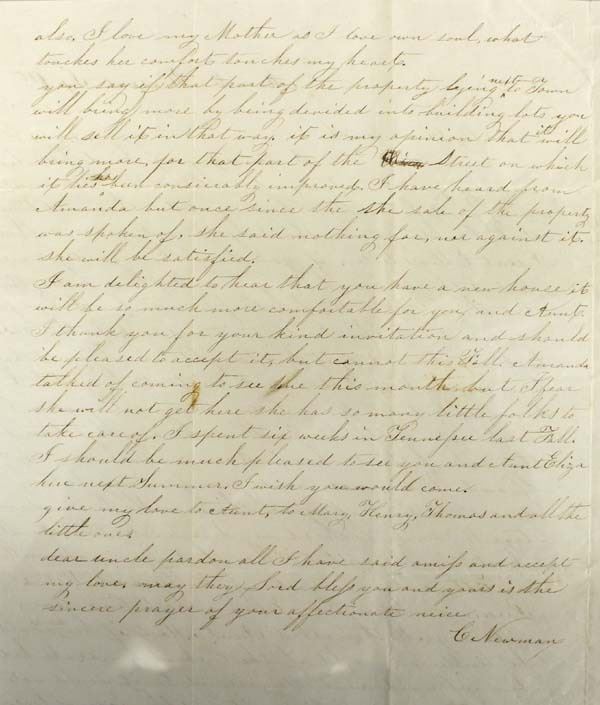 also. I love my Mother as I love own soul, what
touches her comfort touches my heart.
you say if that part of the property lying next to Town
will bring more by being devided into building lots you
will sell it in that way. it is my opinion that it will
bring more, for that part of the Street on which
it lies has been considerably improved. I have heard from
Amanda but once since the the sale of the property
was spoken of. she said nothing for, nor against it.
she will be satisfied.
I am delighted to hear that you have a new house, it
will be so much more comfortable for you and Aunt.
I thank you for your kind invitation and should
be pleased to accept it, but cannot this Fall. Amanda
talked of coming to see me this month but I fear
she will not get here she has so many little folks to
take care of. I spent six weeks in Tennessee last Fall.
I should be much pleased to see you and Aunt Eliza
here next Summer. I wish you would come.
give my love to Aunt, to Mary, Henry, Thomas and all the
little ones
dear uncle pardon all I have said amiss and accept
my love. may they Lord bless you and yours is the
sincere prayer of your affectionate neice
C Newman